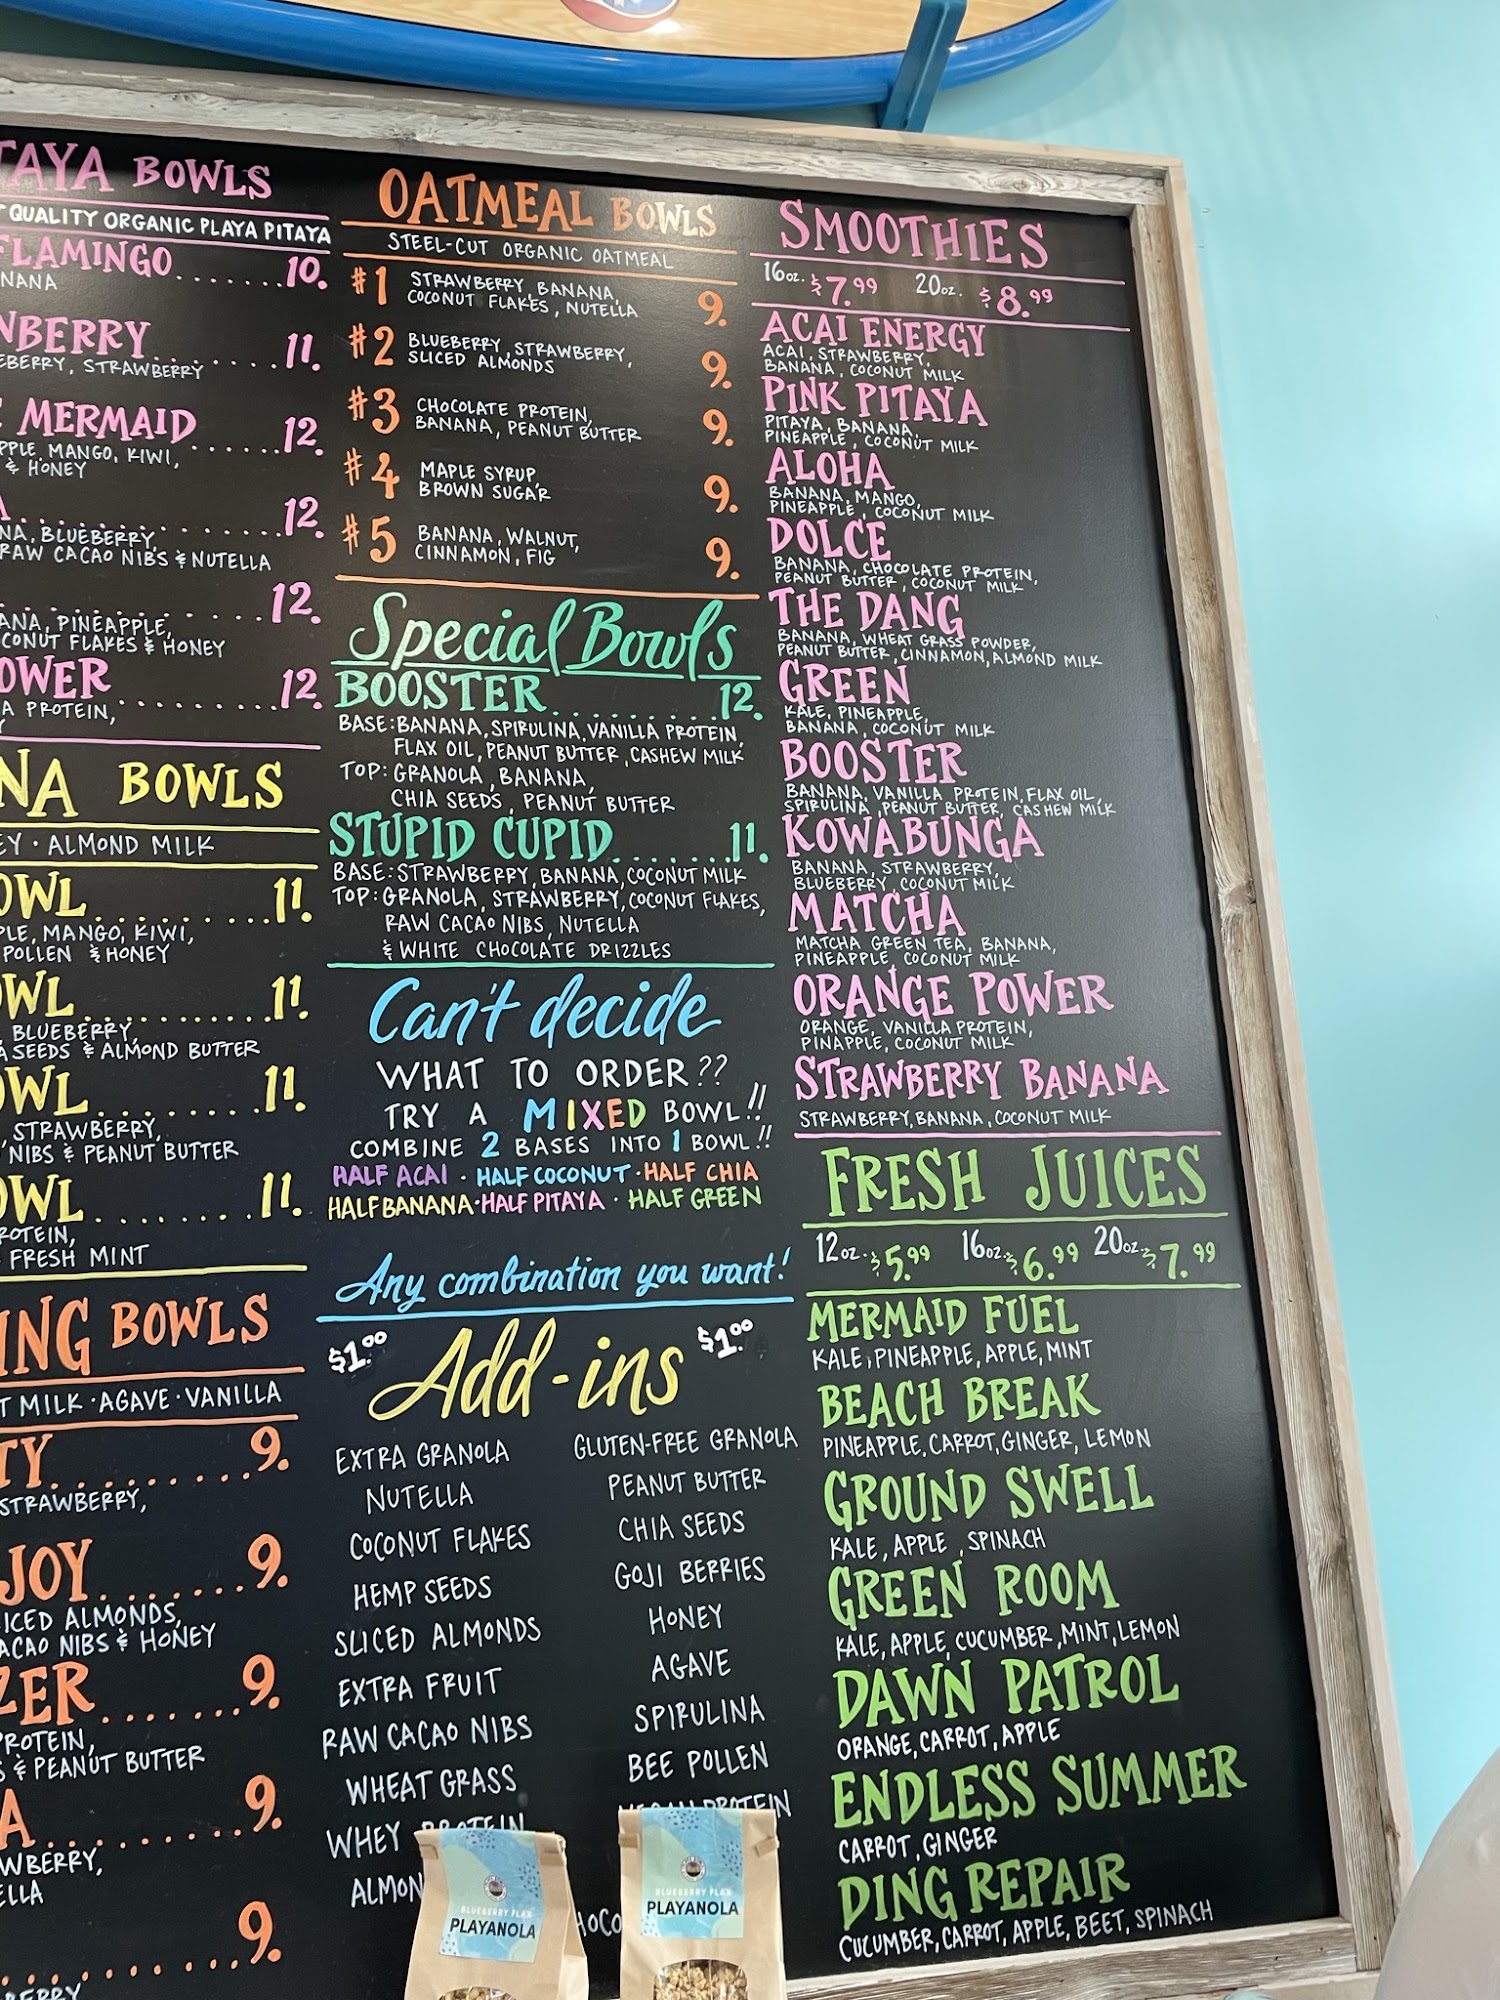 BOWLS
QUALITY ORGANIC PLAYA PITAYA
FLAMINGO.......10.
MERMAID.....12.
MANGO, KIWI,
& HONEY
BERRY.......11.
STRAWBERRY
............12.
BLUEBERRY,
RAW CACAO NIBS & NUTELLA
............12.
PINEAPPLE,
& HONEY
...........12.
PROTEIN,
BOWLS
· ALMOND MILK
...........11.
MANGO, KIWI,
POLLEN & HONEY
...........11.
BLUEBERRY,
SEEDS & ALMOND BUTTER
...........11.
STRAWBERRY,
NIBS & PEANUT BUTTER
...........11.
FRESH MINT
BOWLS
MILK · AGAVE · VANILLA
.........9.
STRAWBERRY,
JOY.......9.
ALMONDS,
NIBS & HONEY
.......9.
& PEANUT BUTTER
.........9.
9.
OATMEAL BOWLS
STEEL-CUT ORGANIC OATMEAL
#1 STRAWBERRY, BANANA,
COCONUT FLAKES, NUTELLA 9.
#2 BLUEBERRY, STRAWBERRY,
SLICED ALMONDS 9.
#3 CHOCOLATE PROTEIN,
BANANA, PEANUT BUTTER 9.
#4 MAPLE SYRUP,
BROWN SUGAR 9.
#5 BANANA, WALNUT,
CINNAMON, FIG 9.
Special Bowls
BOOSTER.........12.
BASE: BANANA, SPIRULINA, VANILLA PROTEIN,
FLAX OIL, PEANUT BUTTER, CASHEW MILK
TOP: GRANOLA, BANANA,
CHIA SEEDS, PEANUT BUTTER
STUPID CUPID.......11.
BASE: STRAWBERRY, BANANA, COCONUT MILK
TOP: GRANOLA, STRAWBERRY, COCONUT FLAKES,
RAW CACAO NIBS, NUTELLA
& WHITE CHOCOLATE DRIZZLES
Can't decide
WHAT TO ORDER??
TRY A MIXED BOWL!!
COMBINE 2 BASES INTO 1 BOWL!!
HALF ACAI · HALF COCONUT · HALF CHIA
HALF BANANA · HALF PITAYA · HALF GREEN
Any combination you want!
$1.00 Add-ins $1.00
EXTRA GRANOLA
NUTELLA
COCONUT FLAKES
HEMP SEEDS
SLICED ALMONDS
EXTRA FRUIT
RAW CACAO NIBS
WHEAT GRASS
WHEY PROTEIN
GLUTEN-FREE GRANOLA
PEANUT BUTTER
CHIA SEEDS
GOJI BERRIES
HONEY
AGAVE
SPIRULINA
BEE POLLEN
PROTEIN
BLUEBERRY FLAX
PLAYANOLA
BLUEBERRY FLAX
PLAYANOLA
SMOOTHIES
16oz. $7.99 20oz. $8.99
ACAI ENERGY
ACAI, STRAWBERRY,
BANANA, COCONUT MILK
PINK PITAYA
PITAYA, BANANA,
PINEAPPLE, COCONUT MILK
ALOHA
BANANA, MANGO,
PINEAPPLE, COCONUT MILK
DOLCE
BANANA, CHOCOLATE PROTEIN,
PEANUT BUTTER, COCONUT MILK
THE DANG
BANANA, WHEAT GRASS POWDER,
PEANUT BUTTER, CINNAMON, ALMOND MILK
GREEN
KALE, PINEAPPLE,
BANANA, COCONUT MILK
BOOSTER
BANANA, VANILLA PROTEIN, FLAX OIL,
SPIRULINA, PEANUT BUTTER, CASHEW MILK
KOWABUNGA
BANANA, STRAWBERRY,
BLUEBERRY, COCONUT MILK
MATCHA
MATCHA GREEN TEA, BANANA,
PINEAPPLE, COCONUT MILK
ORANGE POWER
ORANGE, VANILLA PROTEIN,
PINAPPLE, COCONUT MILK
STRAWBERRY BANANA
STRAWBERRY, BANANA, COCONUT MILK
FRESH JUICES
12oz. $5.99 16oz. $6.99 20oz. $7.99
MERMAID FUEL
KALE, PINEAPPLE, APPLE, MINT
BEACH BREAK
PINEAPPLE, CARROT, GINGER, LEMON
GROUND SWELL
KALE, APPLE, SPINACH
GREEN ROOM
KALE, APPLE, CUCUMBER, MINT, LEMON
DAWN PATROL
ORANGE, CARROT, APPLE
ENDLESS SUMMER
CARROT, GINGER
DING REPAIR
CUCUMBER, CARROT, APPLE, BEET, SPINACH